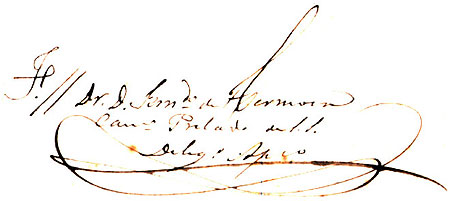 F. // Dr. D. Fern.do de Hermosa
Can.o Prelado de S.S.
Deleg.o Ap.co